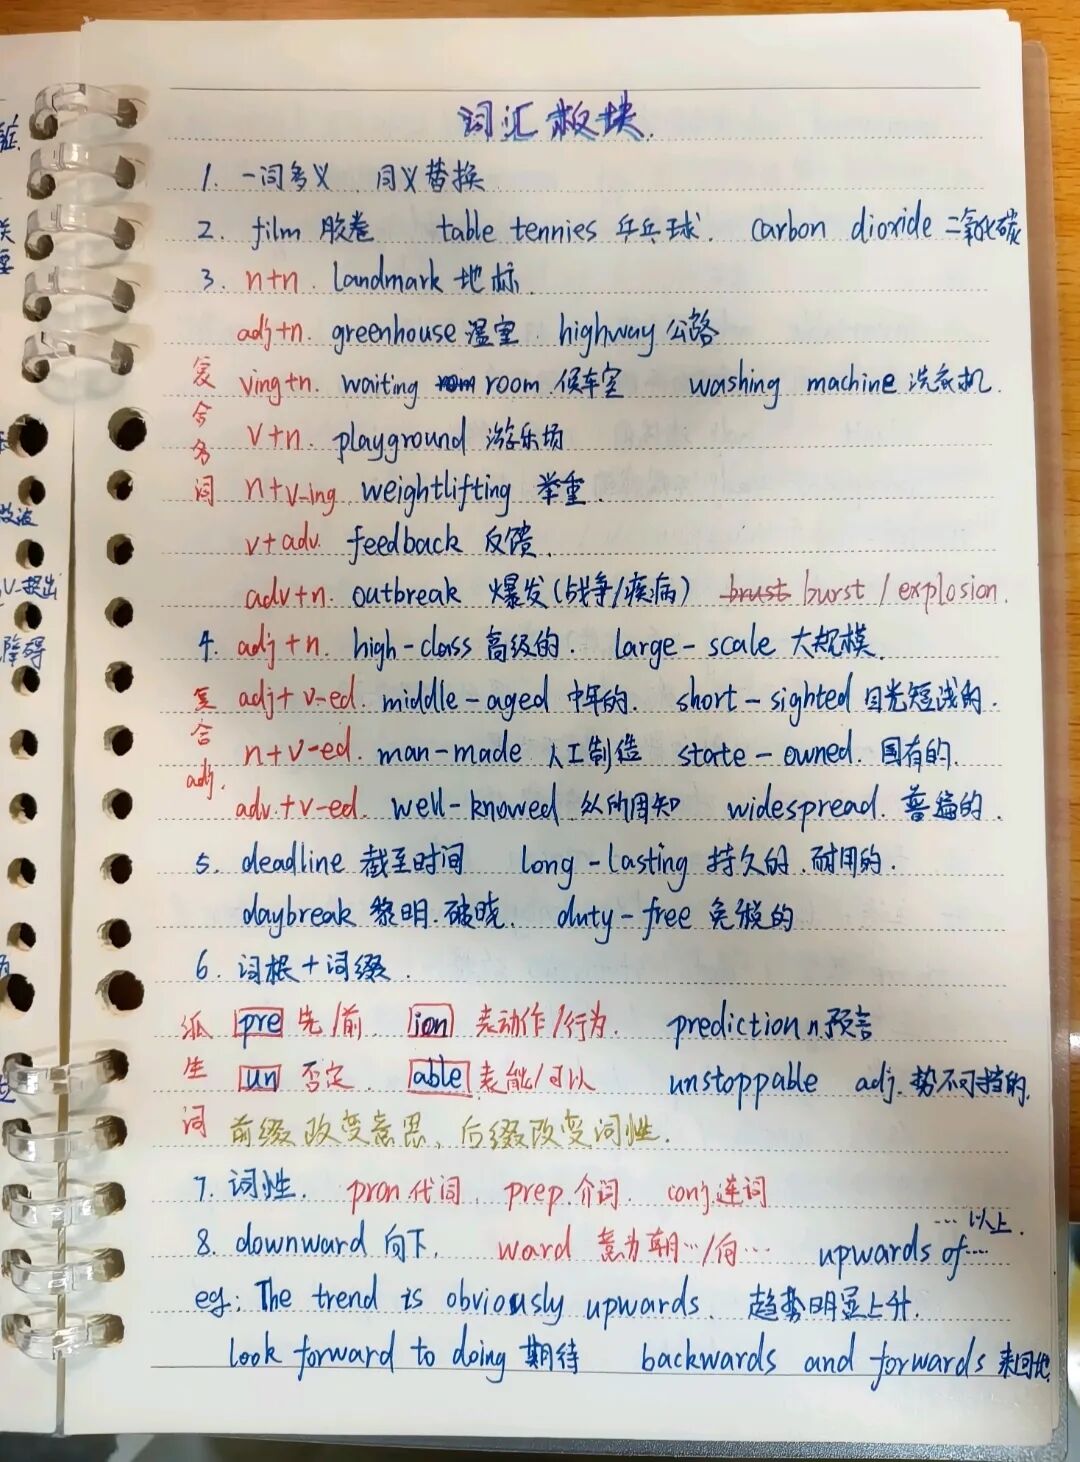 词汇板块.
1. 一词多义 同义替换
2. film 胶卷 table tennies 乒乓球. carbon dioxide 二氧化碳
3. n+n. landmark 地标.
adj+n. greenhouse 温室. highway 公路
ving+n. waiting room room 候车室 washing machine 洗衣机.
v+n. playground 游乐场
n+v-ing weightlifting 举重.
v+adv. feedback 反馈.
adv+n. outbreak 爆发(战争/疾病) brust burst / explosion.
复合名词
4. adj+n. high-class 高级的. large-scale 大规模.
adj+v-ed. middle-aged 中年的. short-sighted 目光短浅的.
n+v-ed. man-made 人工制造 state-owned. 国有的.
adv.+v-ed. well-knowed 众所周知 widespread. 普遍的.
复合adj.
5. deadline 截至时间 long-lasting 持久的.耐用的.
daybreak 黎明.破晓. duty-free 免税的
6. 词根+词缀.
pre 先/前. ion 表动作/行为. prediction n.预言
un 否定. able 表能/可以 unstoppable adj.势不可挡的.
派生词
前缀改变意思、后缀改变词性.
7. 词性. pron.代词. prep.介词. conj.连词
8. downward 向下. ward 意为朝…/向… upwards of… …以上.
eg: The trend is obviously upwards. 趋势明显上升.
look forward to doing 期待 backwards and forwards 来回地.
障碍
v-提出